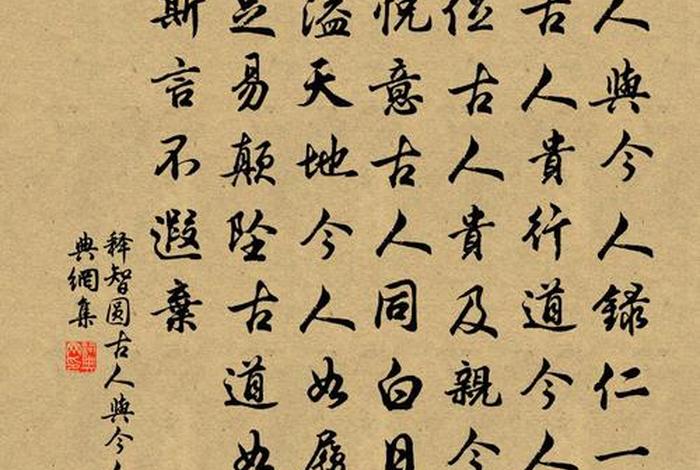 人與今人錄仁一
古人貴行道今人
位古人貴及親今
悦意古人同白日
溢天地今人如屩
足易顛墜古道如
斯言不遐棄
释智圆古人與今人
典網集